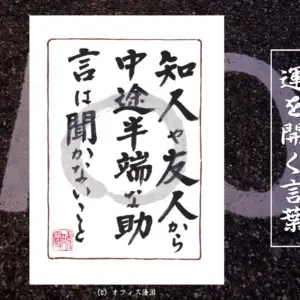 運を開く言葉
知人や友人から
中途半端な助
言は聞かないこと
(C) オフィス湯沼